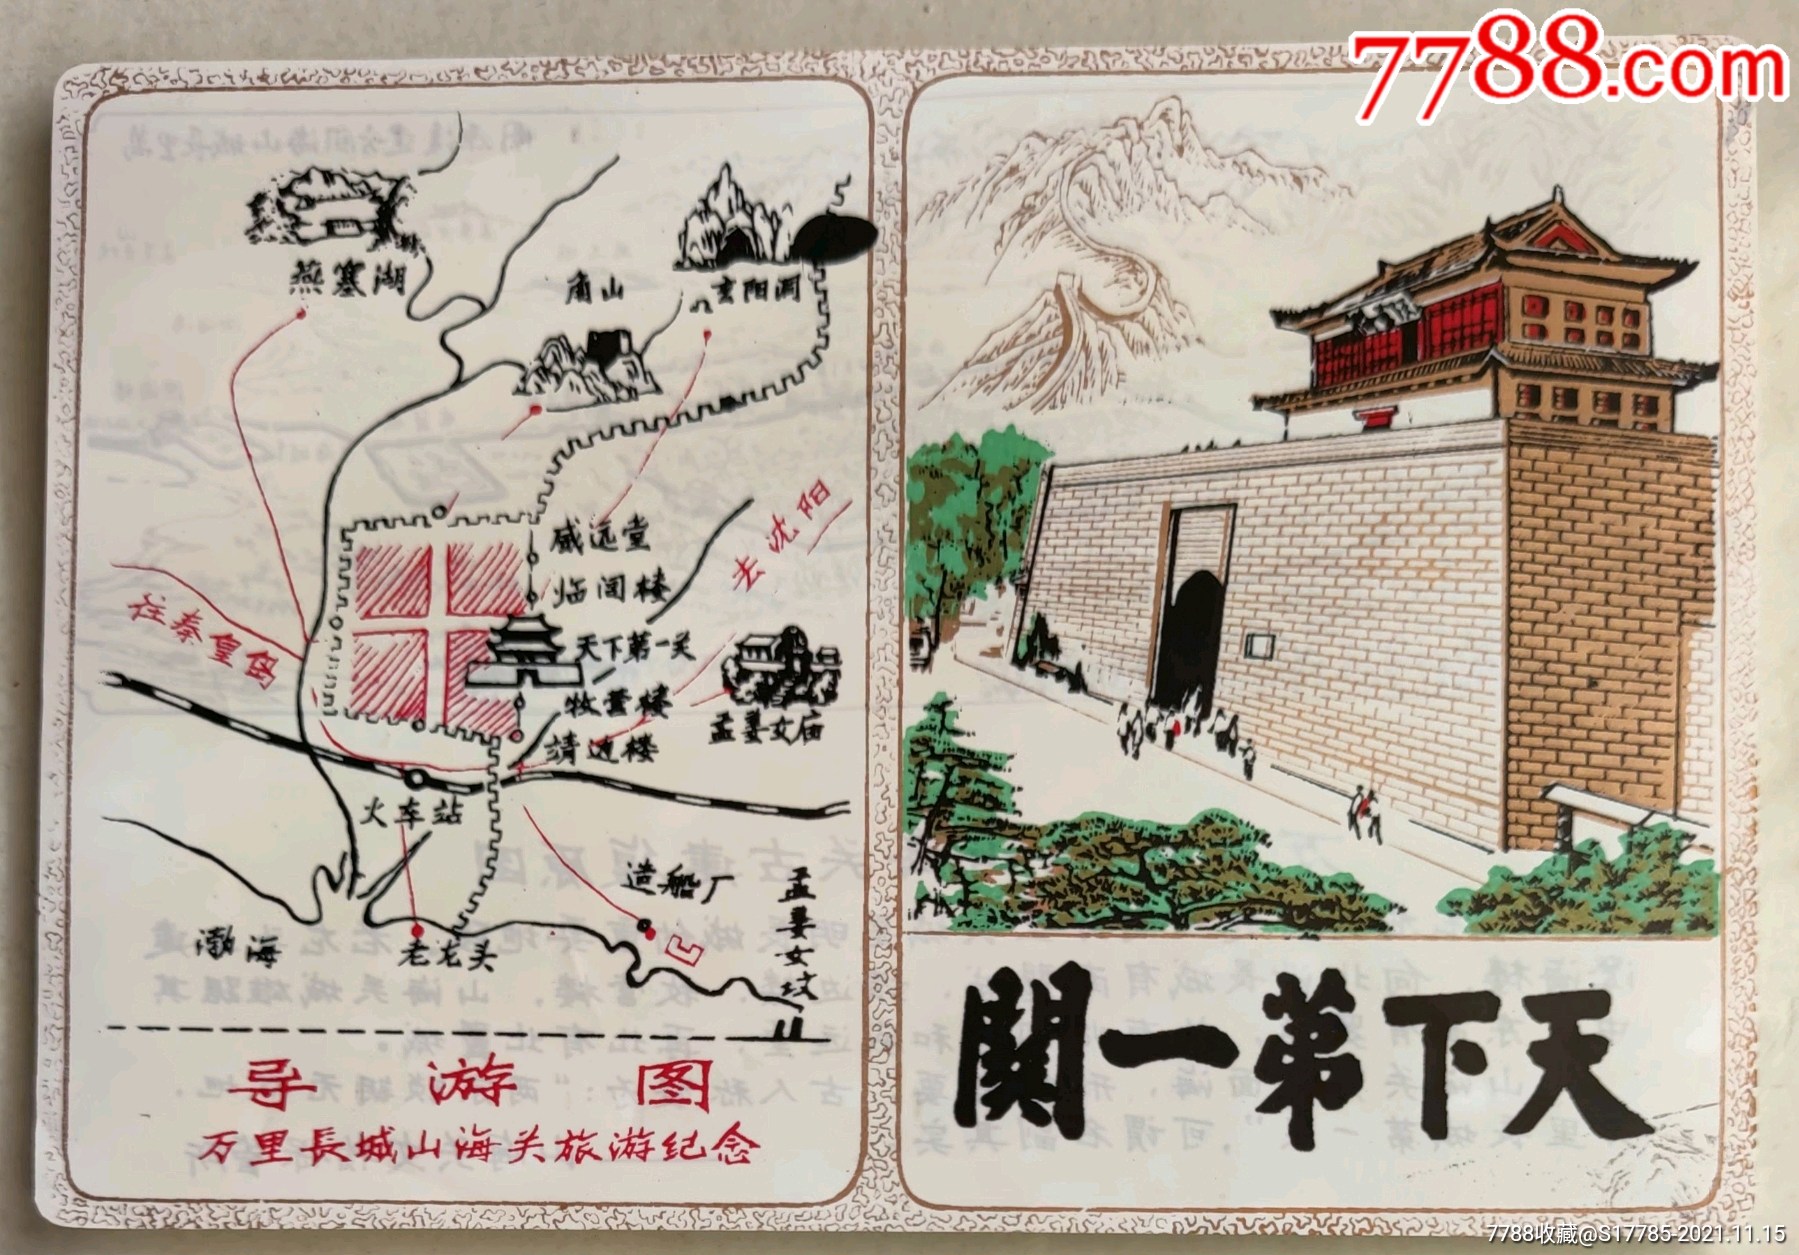 7788.com
燕塞湖
角山
玄阳洞
威远堂
临闾楼
天下第一关
牧营楼
靖边楼
去沈阳
往秦皇岛
孟姜女庙
火车站
造船厂
孟姜女坟
渤海
老龙头
导游图
万里長城山海关旅游纪念
關一第下天
7788收藏@S17785-2021.11.15